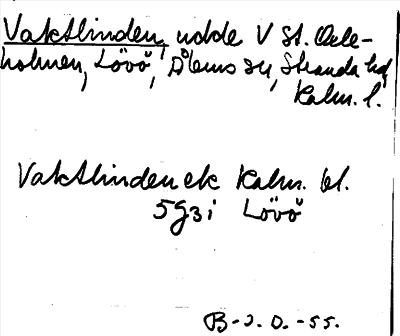 Vaktlinden, udde V St. Oxle-
holmen, Lövö, Ålems sn, Stranda hd
Kalm. l.
Vaktlinden ek Kalm. bl.
5G3i Lövö
B-J.O.-55.